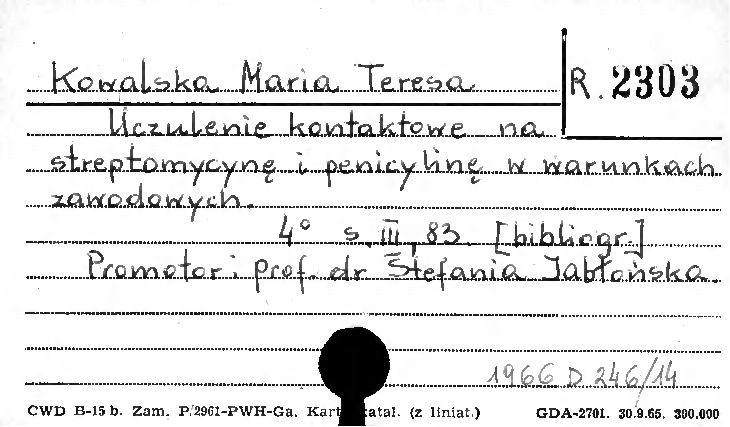 Kowalska Maria Teresa
R. 2303
Uczulenie kontaktowe na
streptomycynę i penicylinę w warunkach
zawodowych.
4° s. III, 83. [bibliogr.]
Promotor: prof. dr Stefania Jabłońska.
1966 D 246/14
CWD B-15 b. Zam. P/2961-PWH-Ga. Kart. katal. (z liniat.) GDA-2701. 30.9.65. 300.000